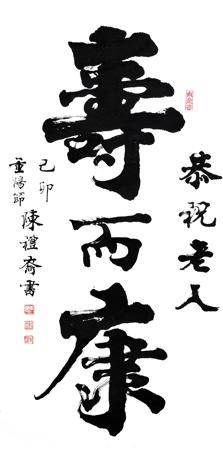 恭祝老人
壽而康
己卯
重陽節
陳禮裔書